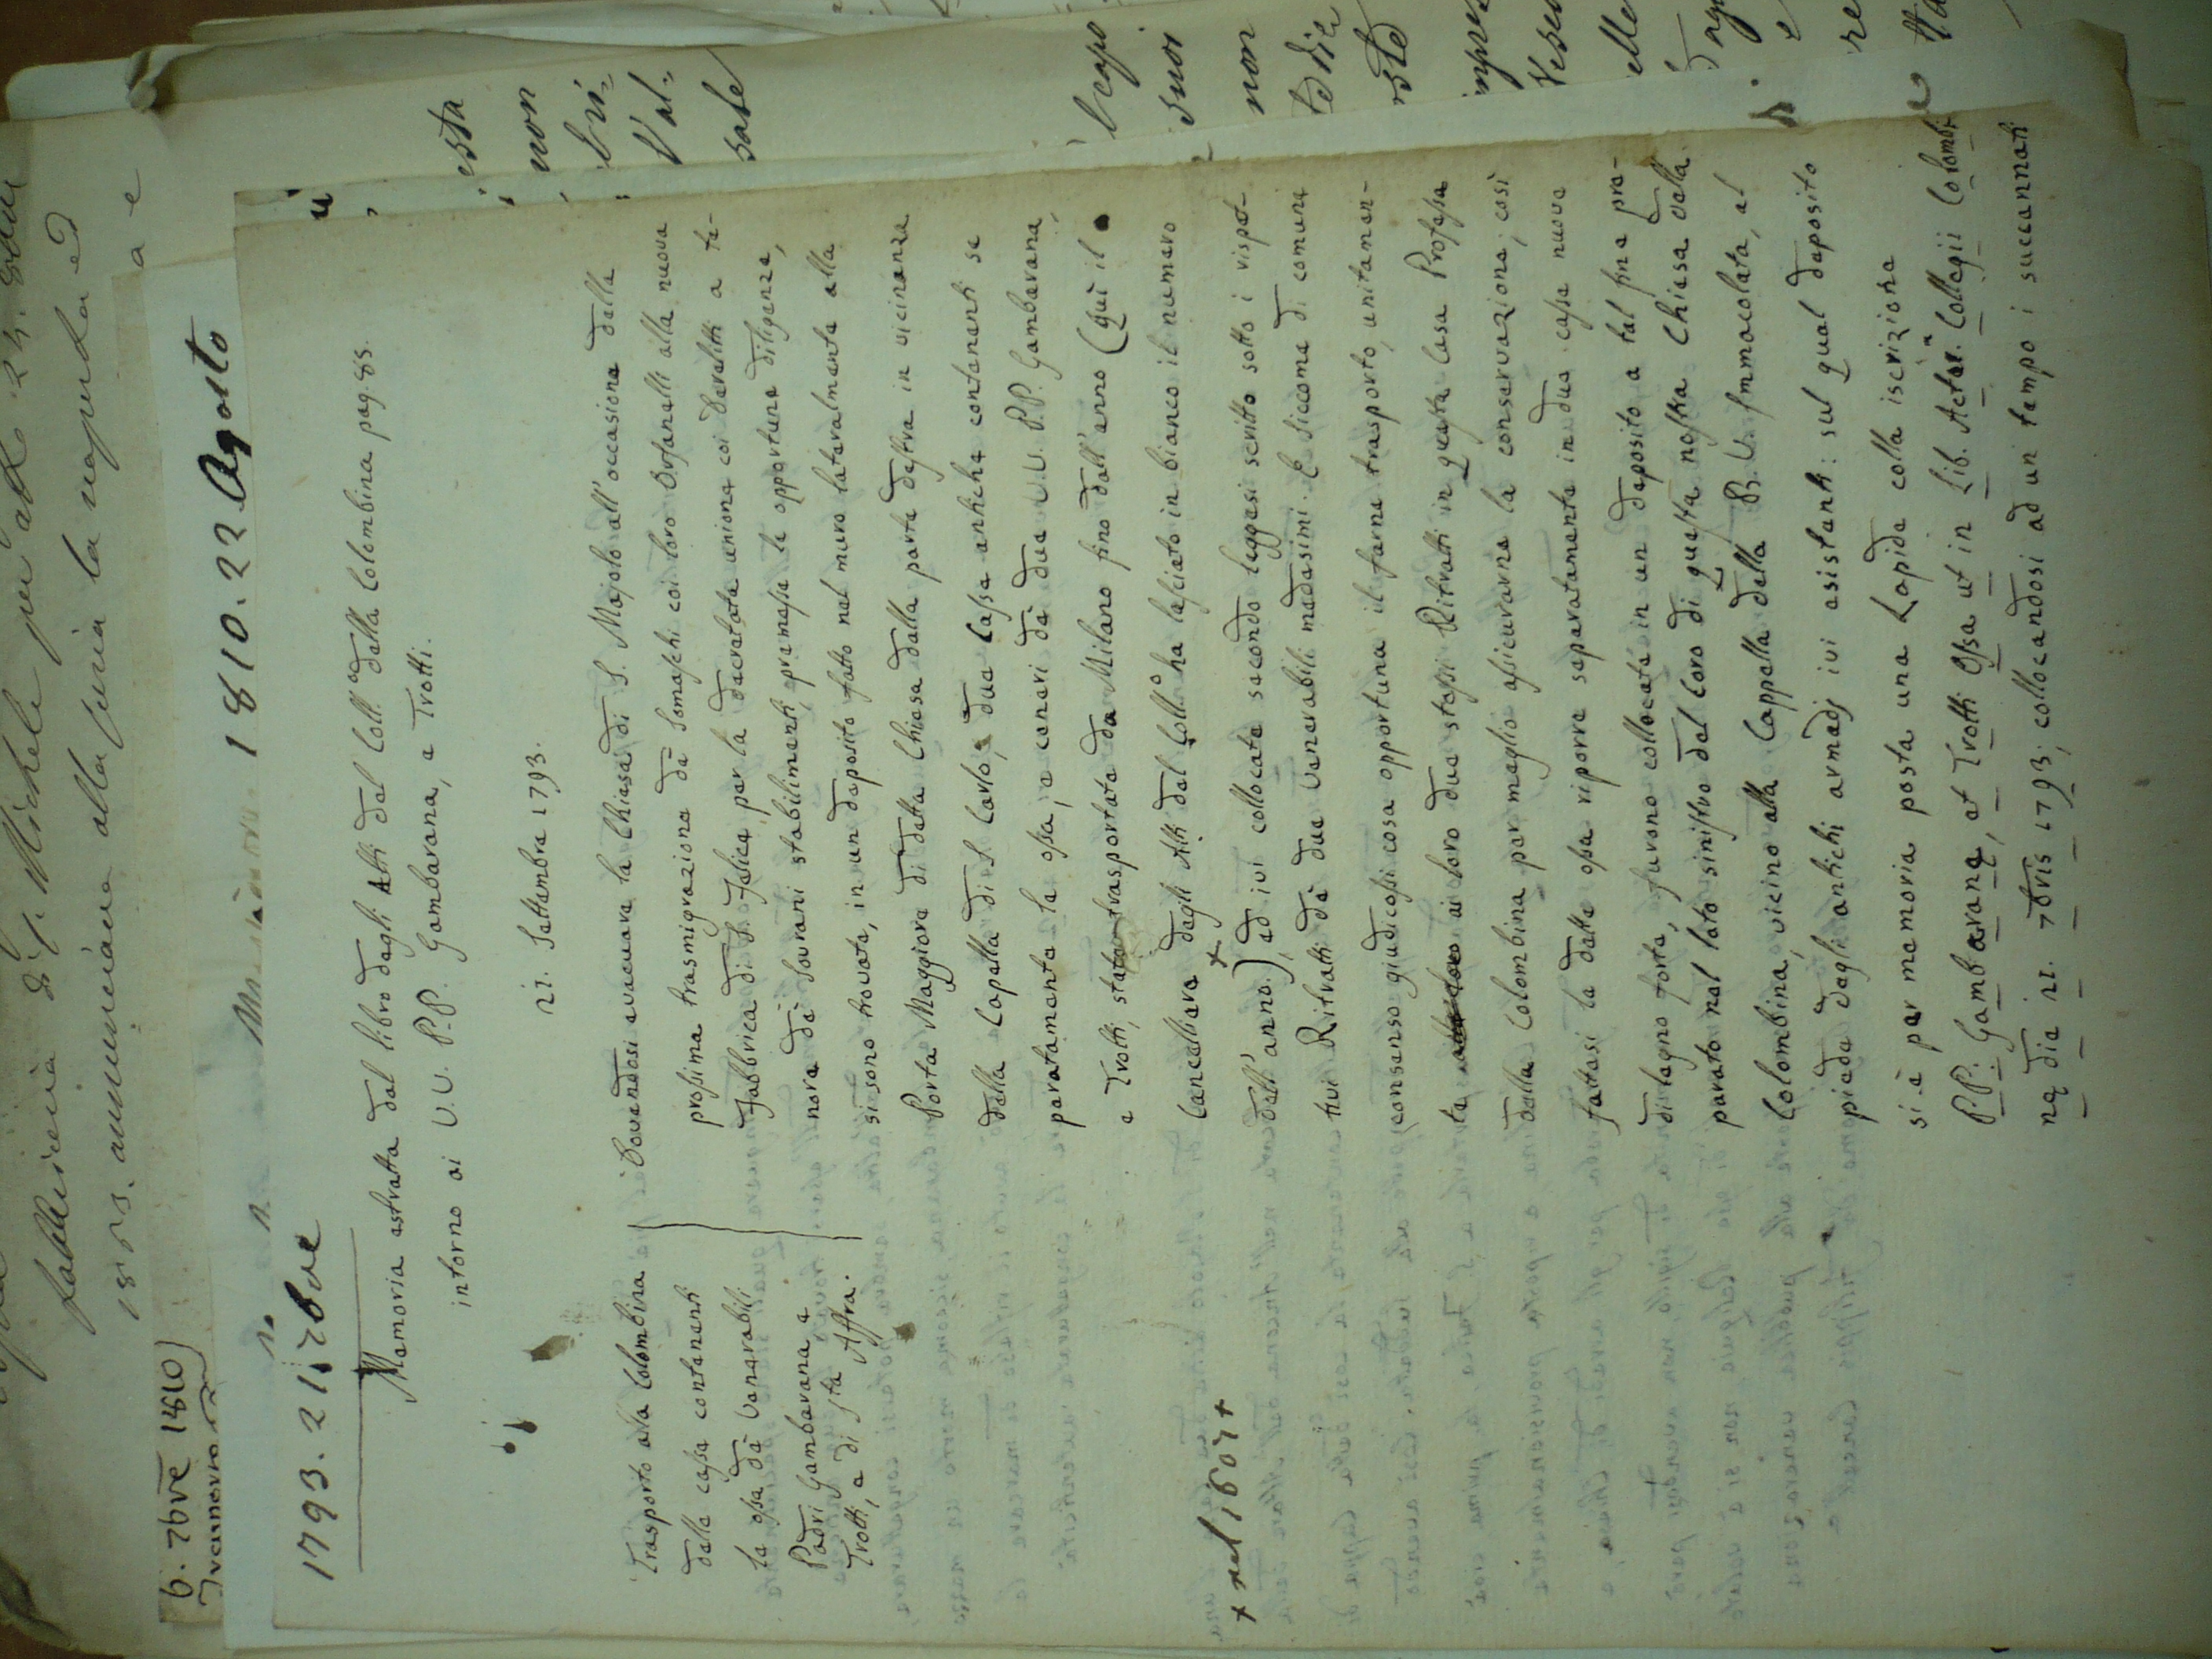 1793. 21. 7bre
Memoria estratta dal libro degli Atti del Coll.º della Colombina pag. 85.
intorno ai V.V. P.P. Gambarana, e Trotti.
21. Settembre 1793.
Trasporto alla Colombina
delle casse contenenti
le ossa dè Venerabili
Padri Gambarana e
Trotti, e di S.ta Affra.
Dovendosi evacuare la Chiesa di S. Majolo all'occasione della
prossima trasmigrazione dè Somaschi coi loro Orfanelli alla nuova
Fabbrica di S. Felice per la decretata unione coi Derelitti a te-
nore dè Sovrani stabilimenti, premesse le opportune diligenze,
si sono trovate, in un deposito fatto nel muro lateralmente alla
Porta Maggiore di detta Chiesa dalla parte destra in vicinanza
della Capella di S. Carlo, due Casse antiche contenenti se
paratamente le ossa, e ceneri dè due V.V. P.P. Gambarana,
e Trotti, state trasportate da Milano fino dall'anno (quì il
Cancelliere degli Atti del Coll.º ha lasciato in bianco il numero
dell'anno.) + ed ivi collocate secondo leggesi scritto sotto i rispet-
tivi Ritratti dè due Venerabili medesimi. E siccome di comune
consenso giudicossi cosa opportuna il farne trasporto, unitamen-
te ai loro due stessi Ritratti in questa Casa Professa
della Colombina per meglio assicurarne la conservazione, così
fattesi le dette ossa riporre separatamente in due casse nuove
di legno forte, furono collocate in un deposito a tal fine pre-
parato nel lato sinistro del Coro di questa nostra Chiesa della
Colombina, vicino alla Cappella della B.V. Immacolata, al
piede degli antichi armadj ivi esistenti: sul qual deposito
si è per memoria posta una Lapide colla iscrizione
P.P. Gambarane, et Trotti Ossa ut in Lib. Actor. Collegii Colombi
ne die 21. 7bris 1793, collocandosi ad un tempo i succennati
+ nel 1607 +
1810. 22 Agosto
6. 7bre 1810
Fabbriceria di S. Michele per
alla
esta
non
Val-
sate
capo
suoi
non